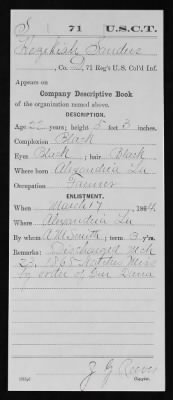 S 71 U.S.C.T.
Hezekiah Sanders
, Co. D, 71 Reg't U.S. Col'd Inf.
Appears on
Company Descriptive Book
of the organization named above.
DESCRIPTION.
Age 22 years; height 5 feet 3 inches.
Complexion Black
Eyes Black ; hair Black
Where born Alexandria La
Occupation Farmer
ENLISTMENT.
When March 17 , 1864.
Where Alexandria La
By whom A M Smith ; term 3 y'rs.
Remarks: Discharged Mch
23, 1865 Natchez Miss
by order of Gen Dana
J. G. Reeves
Copyist.